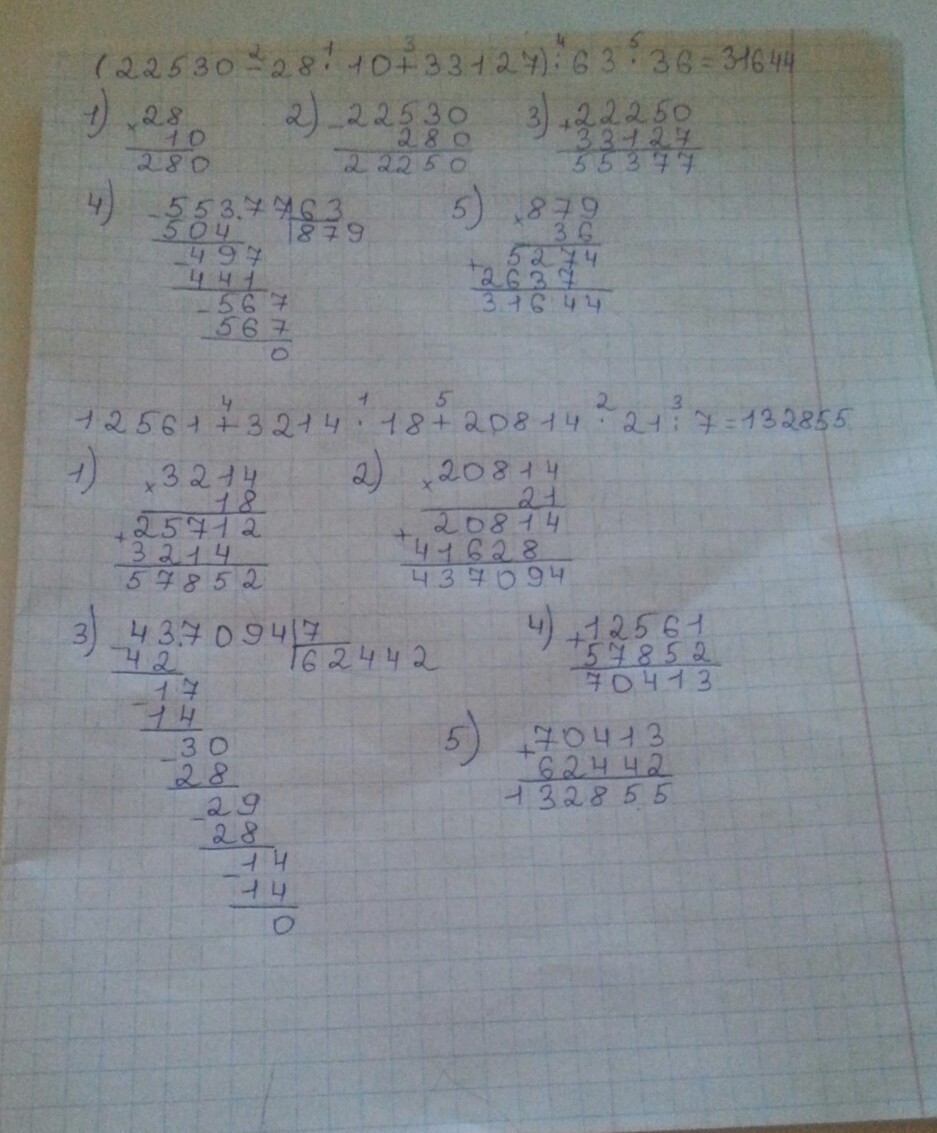 (22530-28·10+33127):63·36=31644
2 1 3 4 5
1) ×28 2) -22530 3) +22250
10 280 33127
280 22250 55377
4) -55377|63 5) ×879
504 |879 36
-497 +5274
441 2637
-567 31644
567
0
12561+3214·18+20814·21:7=132855
4 1 5 2 3
1) ×3214 2) ×20814
18 21
+25712 +20814
3214 41628
57852 437094
3) -437094|7 4) +12561
42 |62442 57852
-17 70413
14
-30 5) +70413
28 62442
-29 132855
28
-14
14
0